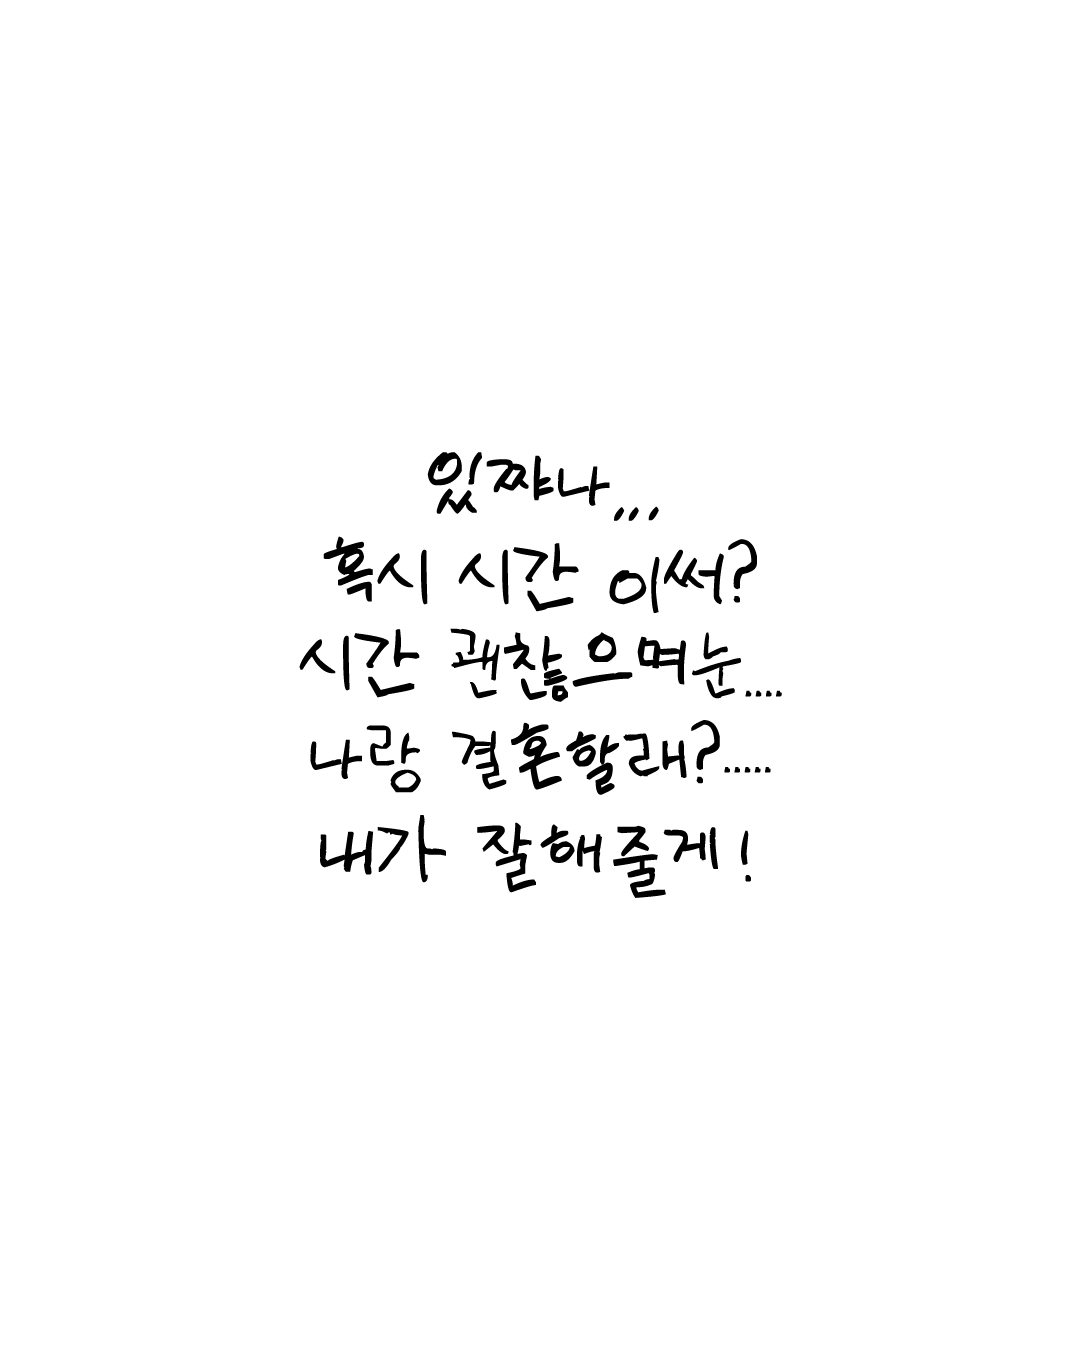 있쨔나,,,
혹시 시간 이써?
시간 괜찮으며눈....
나랑 결혼할래?.....
내가 잘해줄게!